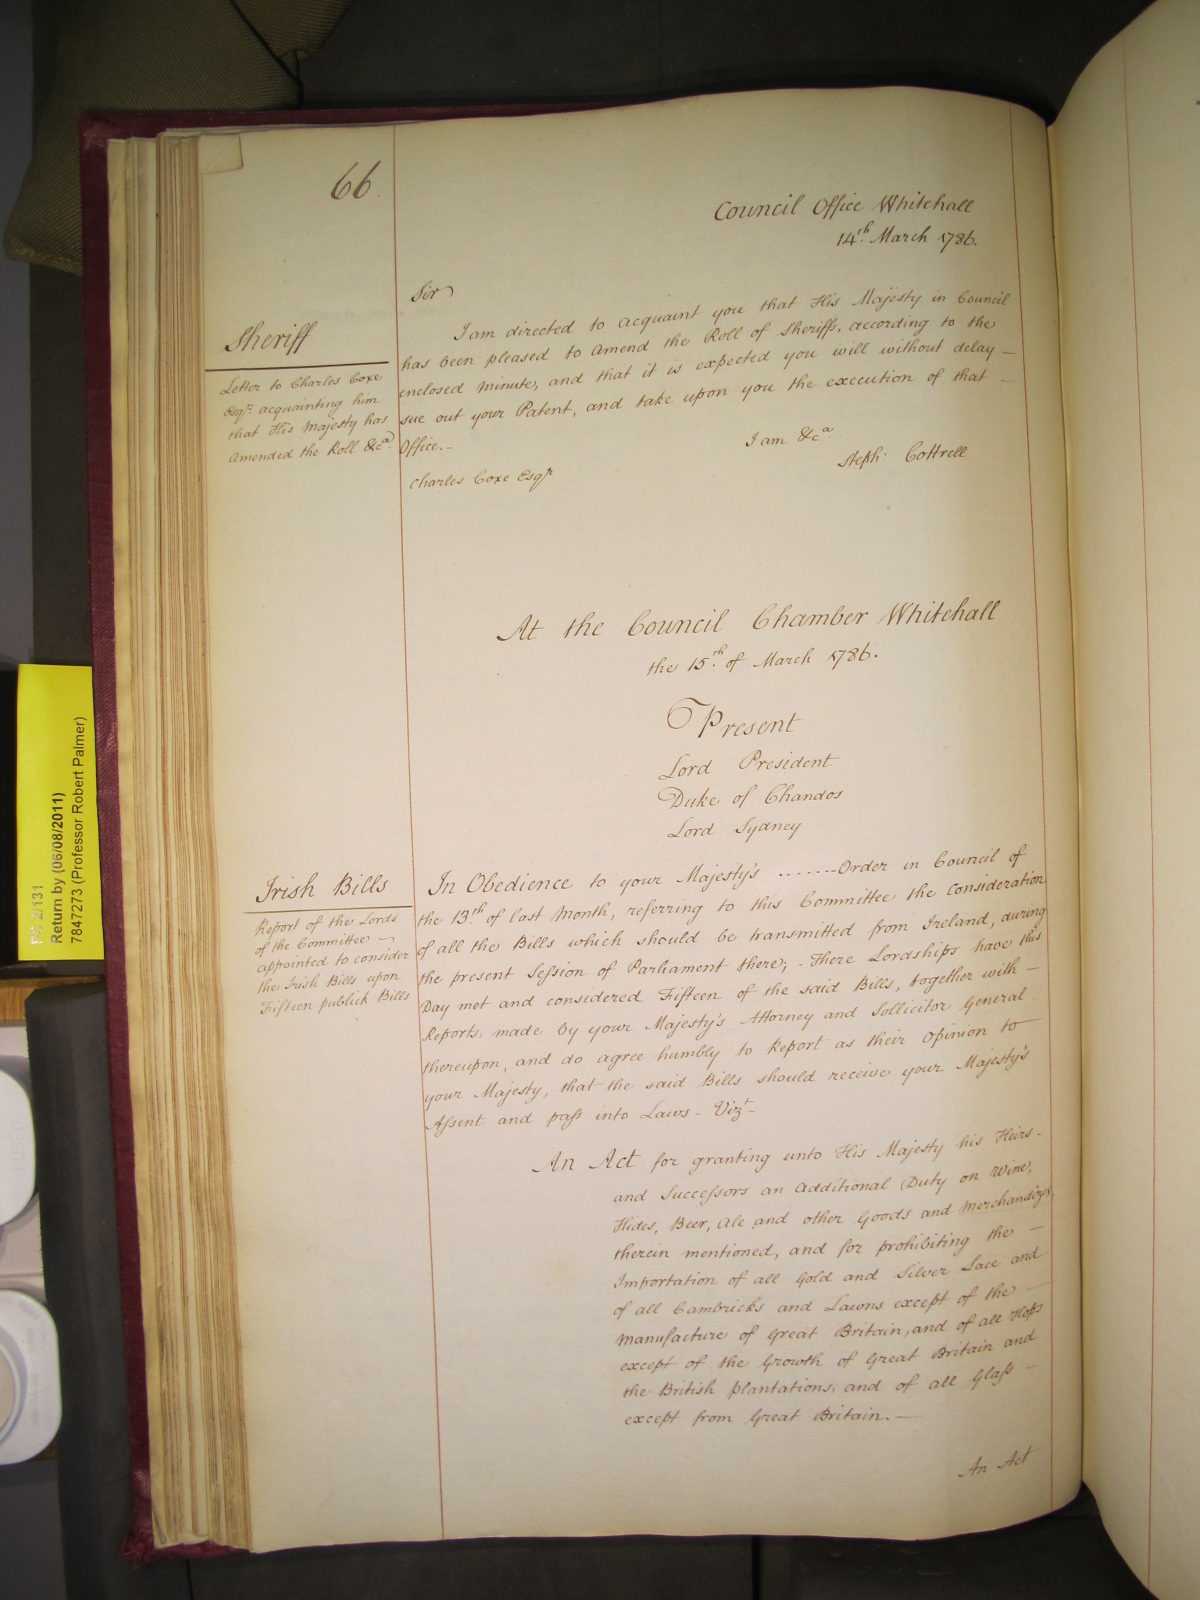 66.
Council Office Whitehall
14th March 1786.
Sir
I am directed to acquaint you that His Majesty in Council
has been pleased to amend the Roll of Sheriffs, according to the
enclosed Minute, and that it is expected you will without delay —
sue out your Patent, and take upon you the execution of that —
Office. —
I am &ca
Steph: Cottrell
Charles Coxe Esqr
Sheriff
Letter to Charles Coxe
Esqr acquainting him
that His Majesty has
amended the Roll &ca
At the Council Chamber Whitehall
the 15th of March 1786.
Present
Lord President
Duke of Chandos
Lord Sydney
Irish Bills
Report of the Lords
of the Committee —
appointed to consider
the Irish Bills upon
Fifteen publick Bills
In Obedience to your Majesty's ........Order in Council of
the 13th of last Month, referring to this Committee the consideration
of all the Bills which should be transmitted from Ireland, during
the present Session of Parliament there; - There Lordships have this
Day met and considered Fifteen of the said Bills, together with —
Reports, made by your Majesty's Attorney and Sollicitor General
thereupon, and do agree humbly to Report as their Opinion to
your Majesty, that the said Bills should receive your Majesty's
Assent and pass into Laws - Vizt -
An Act for granting unto His Majesty his Heirs -
and Successors an Additional Duty on Wine,
Hides, Beer, Ale and other Goods and Merchandizes,
therein mentioned, and for prohibiting the —
Importation of all Gold and Silver Lace and
of all Cambricks and Lawns except of the —
Manufacture of Great Britain, and of all Hops
except of the Growth of Great Britain and
the British plantations, and of all Glass —
except from Great Britain. —
An Act
PC 2/131
Return by (06/08/2011)
7847273 (Professor Robert Palmer)